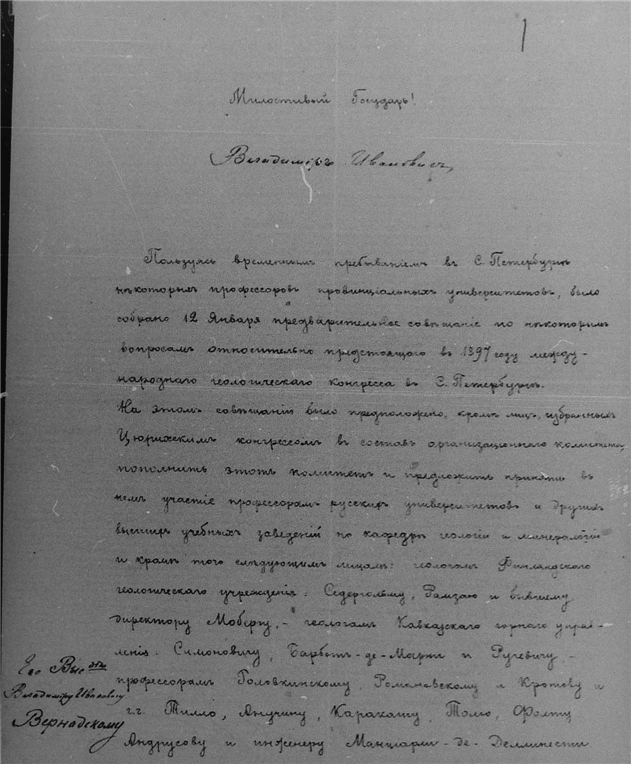 1
Милостивый Государь!
Владиміръ Ивановичъ,
Пользуясь временнымъ пребываніемъ въ С. Петербургѣ
нѣкоторыхъ профессоровъ провинціальныхъ университетовъ, было
собрано 12 Января предварительное совѣщаніе по нѣкоторымъ
вопросамъ относительно предстоящаго въ 1897 году между-
народнаго геологическаго конгресса въ С. Петербургѣ.
На этомъ совѣщаніи было предположено, кромѣ лицъ, избранныхъ
Цюрихскимъ конгрессомъ въ составъ организаціоннаго комитета,
пополнить этотъ комитетъ и предложить принять въ
немъ участіе профессорамъ русскихъ университетовъ и другихъ
высшихъ учебныхъ заведеній по кафедрѣ геологіи и минералогіи
и кромѣ того слѣдующимъ лицамъ: геологамъ Финляндскаго
геологическаго учрежденія: Седергольму, Рамзаю и бывшему
директору Мобергу, – геологамъ Кавказскаго горнаго управ-
ленія: Симоновичу, Барботъ-де-Марни и Руцевичу, –
профессорамъ Головкинскому, Романовскому и Кротову и
г.г. Тилло, Анучину, Каракашу, Толю, Фохту
Андрусову и инженеру Манціарли-де-Деллинести
Его Выс–дію
Владиміру Ивановичу
Вернадскому